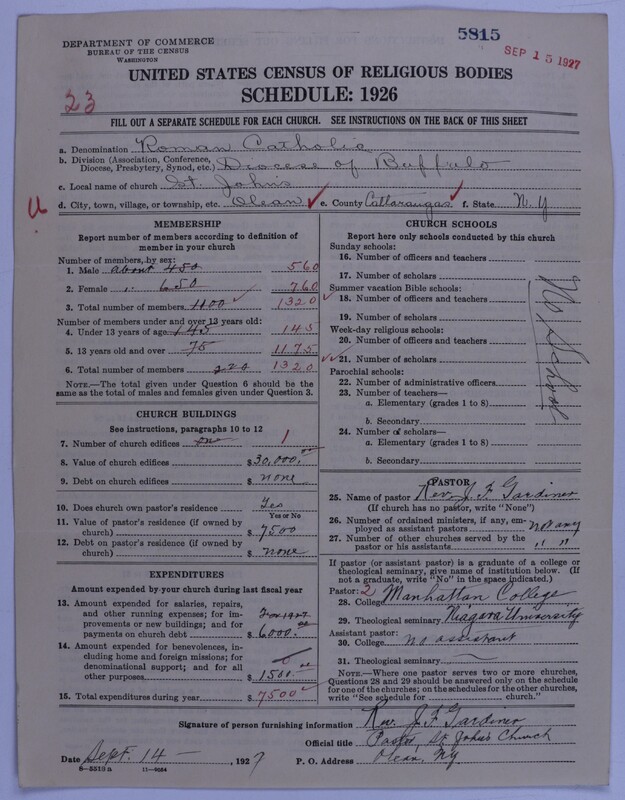 5815
SEP 15 1927
DEPARTMENT OF COMMERCE
BUREAU OF THE CENSUS
WASHINGTON
UNITED STATES CENSUS OF RELIGIOUS BODIES
SCHEDULE: 1926
23
FILL OUT A SEPARATE SCHEDULE FOR EACH CHURCH. SEE INSTRUCTIONS ON THE BACK OF THIS SHEET
a. Denomination Roman Catholic
b. Division (Association, Conference, Diocese, Presbytery, Synod, etc.) Diocese of Buffalo
c. Local name of church St. John's
d. City, town, village, or township, etc. Olean e. County Cattaraugas f. State N. Y
U
MEMBERSHIP
Report number of members according to definition of
member in your church
Number of members, by sex:
1. Male about 450 560
2. Female " 650 760
3. Total number of members 1100 1320
Number of members under and over 13 years old:
4. Under 13 years of age 145 145
5. 13 years old and over 75 1175
6. Total number of members 220 1320
NOTE.—The total given under Question 6 should be the
same as the total of males and females given under Question 3.
CHURCH BUILDINGS
See instructions, paragraphs 10 to 12
7. Number of church edifices one 1
8. Value of church edifices $30,000.00
9. Debt on church edifices $ none
10. Does church own pastor's residence? Yes
Yes or No
11. Value of pastor's residence (if owned by
church) $ 7500
12. Debt on pastor's residence (if owned by
church) $ none
EXPENDITURES
Amount expended by your church during last fiscal year
13. Amount expended for salaries, repairs,
and other running expenses; for im-
provements or new buildings; and for
payments on church debt $ 6000.00
14. Amount expended for benevolences,
including home and foreign missions; for
denominational support; and for all
other purposes $ 1500.00
15. Total expenditures during year $ 7500
CHURCH SCHOOLS
Report here only schools conducted by this church
Sunday schools:
16. Number of officers and teachers
17. Number of scholars
Summer vacation Bible schools:
18. Number of officers and teachers
19. Number of scholars
Week-day religious schools:
20. Number of officers and teachers
21. Number of scholars
Parochial schools:
22. Number of administrative officers
23. Number of teachers—
a. Elementary (grades 1 to 8)
b. Secondary
24. Number of scholars—
a. Elementary (grades 1 to 8)
b. Secondary
No School
PASTOR
25. Name of pastor Rev. J. F. Gardiner
(If church has no pastor, write "None")
26. Number of ordained ministers, if any, em-
ployed as assistant pastors not any
27. Number of other churches served by the
pastor or his assistants " "
If pastor (or assistant pastor) is a graduate of a college or
theological seminary, give name of institution below. (If
not a graduate, write "No" in the space indicated.)
Pastor: 2
28. College Manhattan College
29. Theological seminary Niagara University
Assistant pastor:
30. College no assistant
31. Theological seminary
NOTE.—Where one pastor serves two or more churches,
Questions 28 and 29 should be answered only on the schedule
for one of the churches; on the schedules for the other churches,
write "See schedule for church."
Signature of person furnishing information Rev. J. F. Gardiner
Official title Pastor, St. John's Church
Date Sept. 14 — , 1927 P. O. Address Olean, NY
8—5513a 11—8054